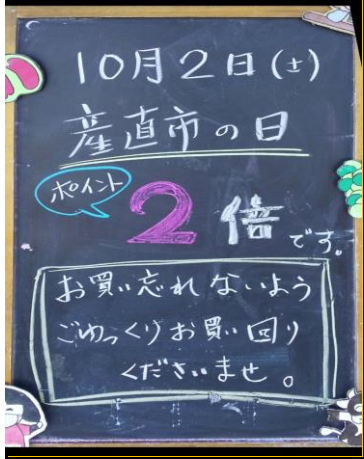 10月2日(土)
産直市の日
ポイント
2倍です。
お買い忘れないよう
ごゆっくりお買い回り
くださいませ。